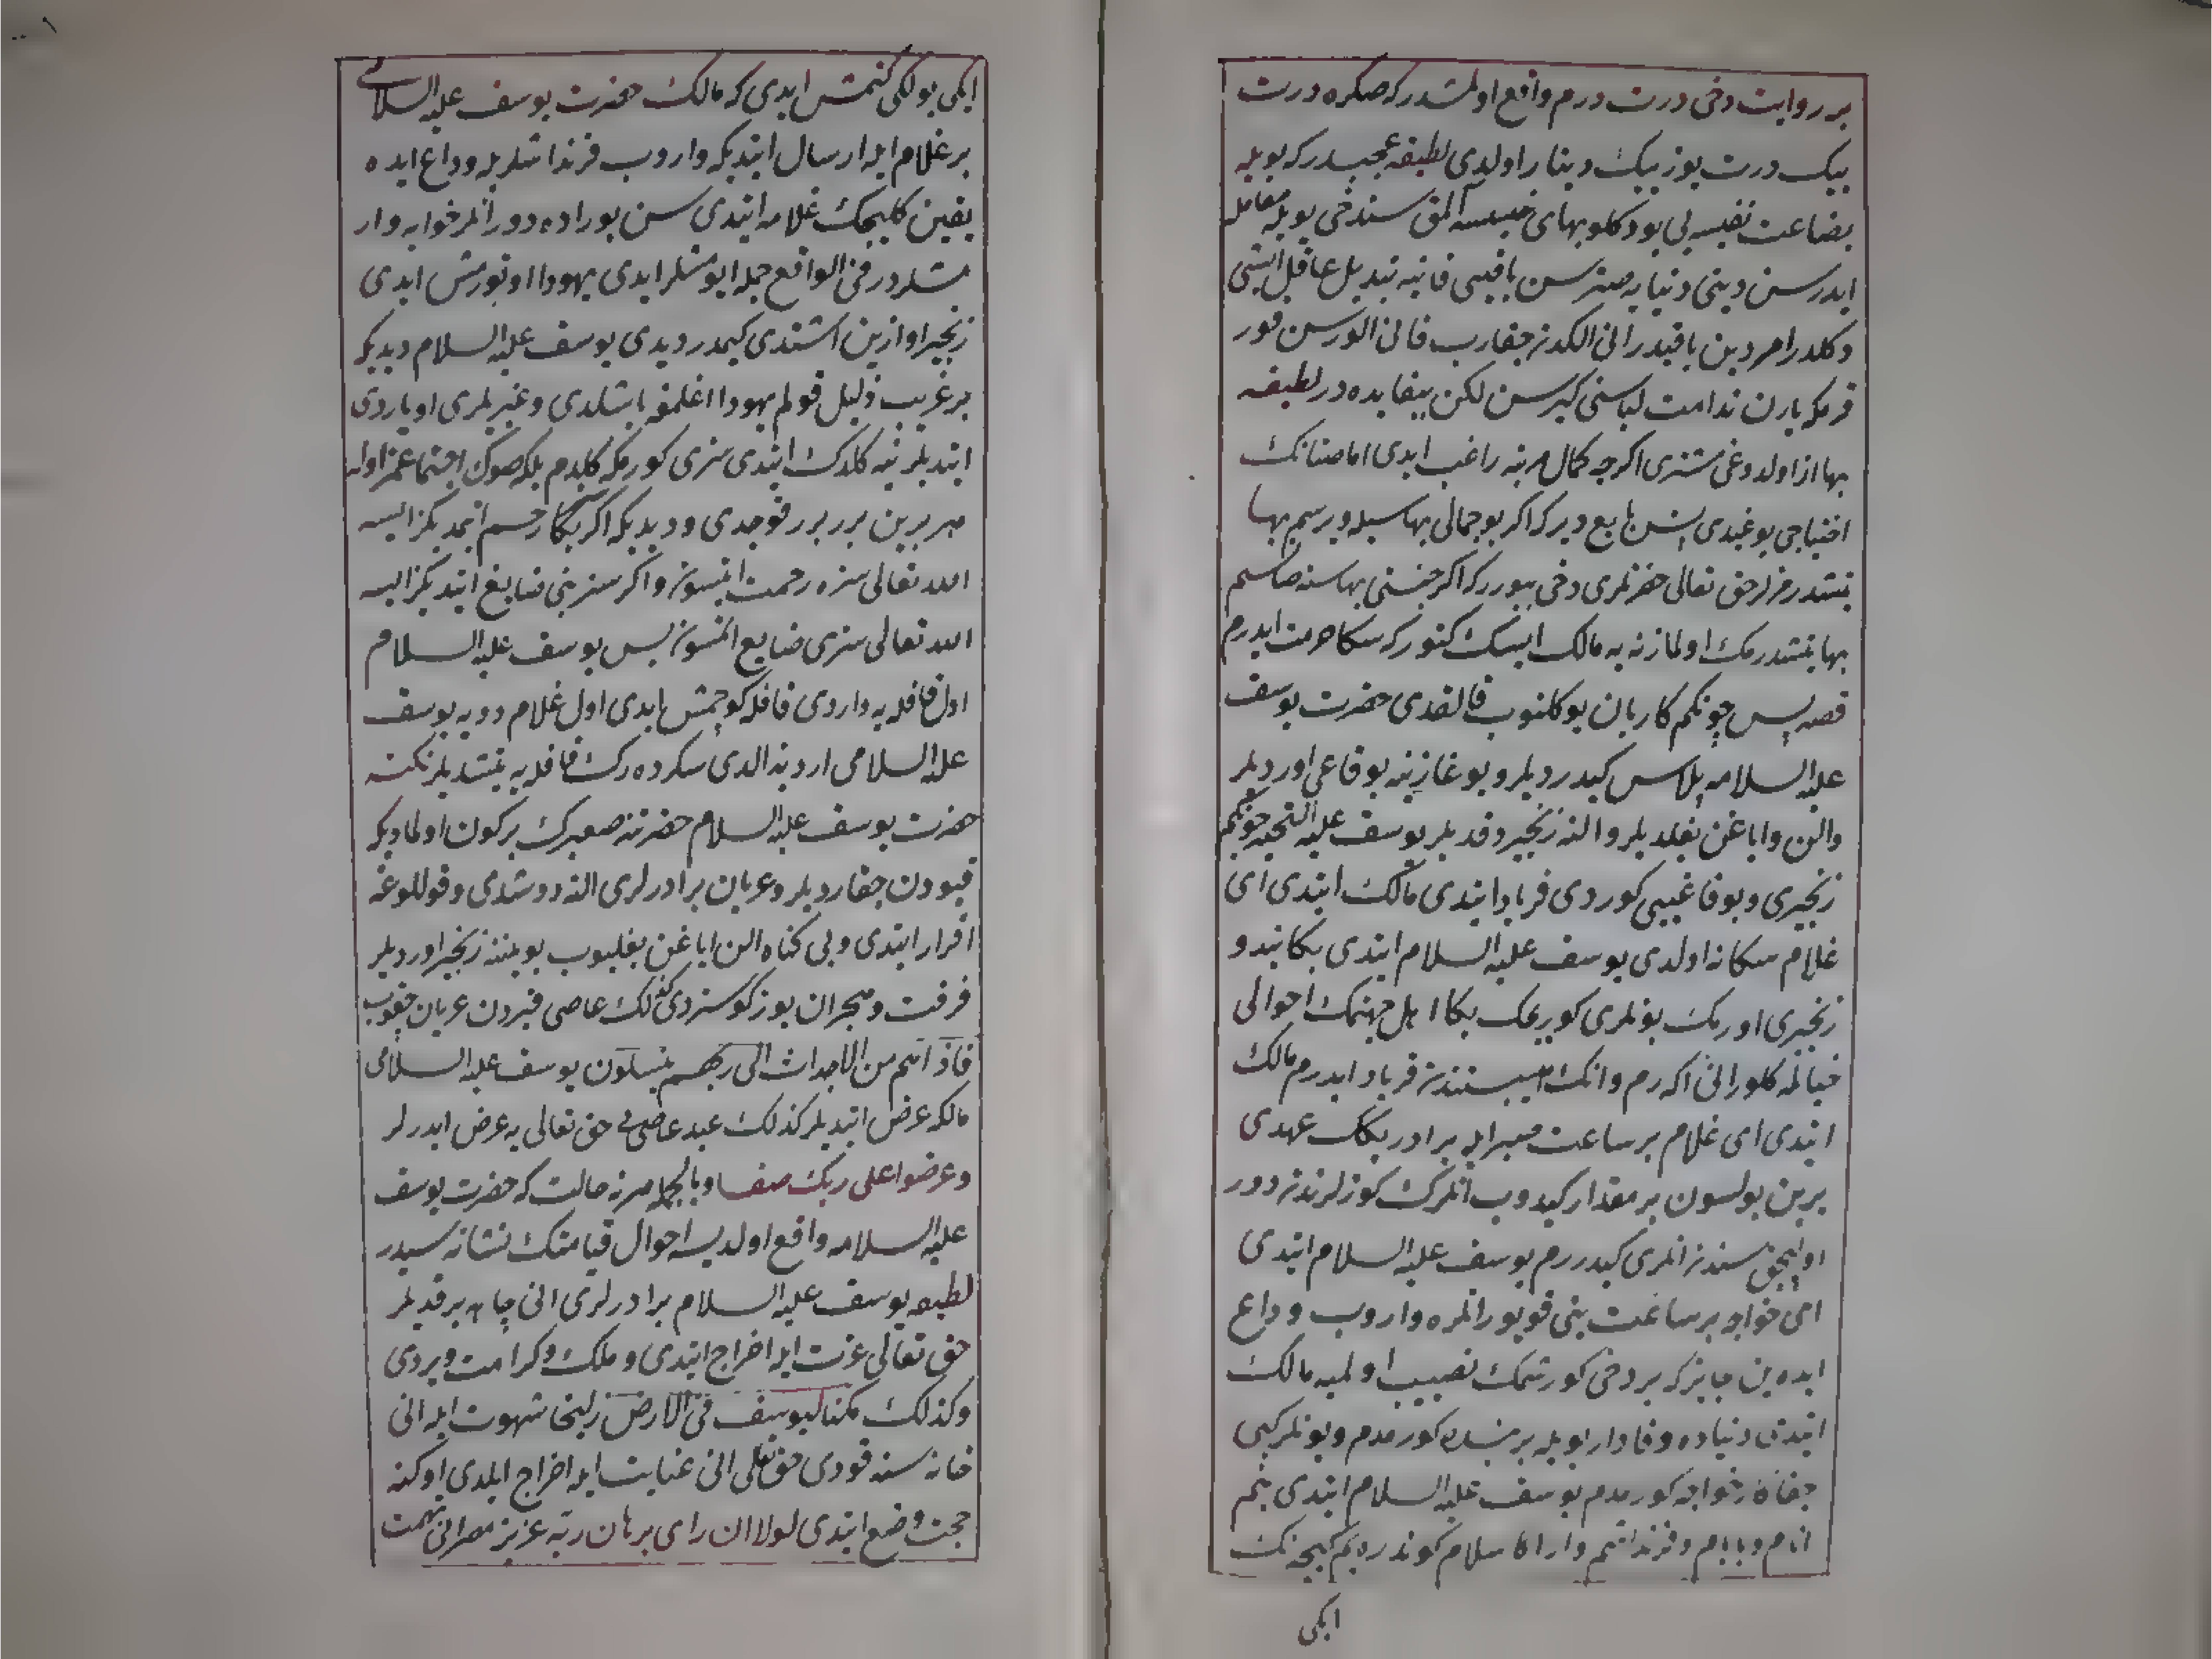 بر روایت دخی درت درم واقع اولمشدر که صکره درت
بیک درت یوز بیک دینار اولدی لطیفه عجبدر که بویله
بضاعت نفیسه یی بو دکلو بهای خسیسه آلمق سندخی بویله معامله
ایدرسن دینی دنیایه صترسن باقیی فانیه تبدیل عاقل ایشی
دکلدر امر دین باقیدر انی الکدن چقارب فانی الورسن قور
قرمکه یارن ندامت لباسنی کیرسن لکن بیفایده در لطیفه
بها از اولدوغی مشتری اکرچه کمال مرتبه راغب ایدی اما صتانک
احتیاجی یوغیدی پس بایع دیر که اکر بو جمالی بهاسیله ویرسم بها
یتشدرمزلر حق تعالی حضرتلری دخی بیورر که اکر جنتی بهاسنه صاتسم
بها یتشدرمک اولماز نه یه مالک ایسک کتور که سکا حرمت ایدرم
قصه پس چونکم کاربان یوکلنوب قالقدی حضرت یوسف
علیه السلامه پلاس کیدردیلر و بوغازینه بوقاعی اوردیلر
والن وایاغن بغلدیلر والنه زنجیر وقدیلر یوسف علیه التحیه چونکم
زنجیری و بوقاغیی کوردی فریاد ایتدی مالک ایتدی ای
غلام سکا نه اولدی یوسف علیه السلام ایتدی بکا بند و
زنجیری اورمک بونلری کوریجک بکا اهل جهنمک احوالی
خیالمه کلور انی اکه رم وانک هیبتندن فریاد ایدرم مالک
ایتدی ای غلام بر ساعت صبر ایله برادر بکک عهدی
یرین بولسون بر مقدار کیدوب انلرک کوزلرندن دور
اولیجق سندن انلری کیدررم یوسف علیه السلام ایتدی
ای خواجه بر ساعت بنی قویور انلره واروب وداع
ایده ین جایز که بر دخی کورشمک نصیب اولمیه مالک
ایتدی دنیاده وفادار بویله بر بنده کورمدم و بونلر کبی
جفاکار خواجه کورمدم یوسف علیه السلام ایتدی بنم
انام و بابام و فرزندانم وارا کا سلام کوندره یم کیجه نک
ایکی
ایکی بولکی کتمش ایدی که مالک حضرت یوسف علیه السلامی
بر غلام ایله ارسال ایتدیکه واروب فرنداشلریله وداع ایده
یقین کلیجک غلامه ایتدی سن بوراده دور انلر خوابه وار
مشلردر فی الواقع جمله ایومشلر ایدی یهودا اوتورمش ایدی
زنجیر اوازین اشتدی کیمدر دیدی یوسف علیه السلام دیدیکه
بر غریب ذلیل قولم یهودا اغلمغه باشلدی وغیریلری اویاردی
ایتدیلر نیه کلدک ایتدی سزی کورمکه کلدم بلکه صوک اجتماعمز اوله
هر برین برر برر قوجدی و دیدیکه اکر بکا رحم ایتمدیکز ایسه
الله تعالی سزه رحمت ایتسون و اکر سز بنی ضایع ایتدیکز ایسه
الله تعالی سزی ضایع ایتمسون پس یوسف علیه السلام
اول قافله یه واردی قافله کوچمش ایدی اول غلام دویه یوسف
علیه السلامی اردینه الدی سکردرک قافله یه یتشدیلر نکته
حضرت یوسف علیه السلام حضرتنه صعبرک بر کون اولمادیکه
قیودن چقاردیلر و عریان برادرلری الینه دوشدی و قوللوغه
اقرار ایتدی و بی کناه الن ایاغن بغلیوب بویننه زنجیر اوردیلر
فرقت و هجران یوز کوستردی کذلک عاصی قبردن عریان چقوب
فاذا هم من الاجداث الی ربهم ینسلون یوسف علیه السلامی
مالکه عرض ایتدیلر کذلک عبد عاصی یی حق تعالی یه عرض ایدرلر
وعرضوا علی ربک صفا وبالجمله هر نه حالت که حضرت یوسف
علیه السلامه واقع اولدیسه احوال قیامتک نشانه سیدر
لطیفه یوسف علیه السلام برادرلری انی چاهه برقدیلر
حق تعالی عزت ایله اخراج ایتدی و ملک و کرامت ویردی
وکذلک مکنا لیوسف فی الارض زلیخا شهوت ایله انی
خانه سنه قودی حق تعالی انی عنایت ایله اخراج ایلدی اوکنه
حجت وضع ایتدی لولا ان رای برهان ربه عزیز مصر انی تهمت